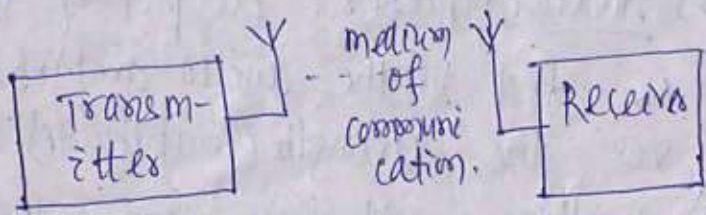 Transm-
itter
medium
of
communi
cation.
Receiver